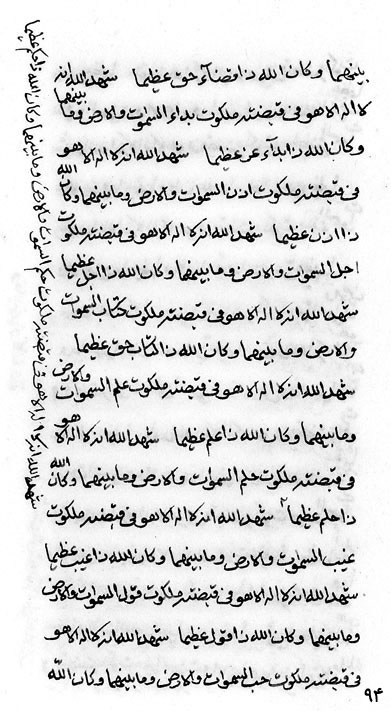 بينهما وكان الله ذا قضآء حق عظيما شهد الله انه
لا اله الا هو فى قبضته ملكوت بداء السموات والارض وما بينهما
وكان الله ذا بدآء عز عظيما شهد الله انه لا اله الا هو
فى قبضته ملكوت اذن السموات والارض وما بينهما وكان الله
ذا اذن عظيما شهد الله انه لا اله الا هو فى قبضته ملكوت
اجل السموات والارض وما بينهما وكان الله ذا اجل عظيما
شهد الله انه لا اله الا هو فى قبضته ملكوت كتاب السموات
والارض وما بينهما وكان الله ذا كتاب حق عظيما
شهد الله انه لا اله الا هو فى قبضته ملكوت علم السموات والارض
وما بينهما وكان الله ذا علم عظيما شهد الله انه لا اله الا هو
فى قبضته ملكوت حلم السموات والارض وما بينهما وكان الله
ذا حلم عظيما شهد الله انه لا اله الا هو فى قبضته ملكوت
غيب السموات والارض وما بينهما وكان الله ذا غيب عظيما
شهد الله انه لا اله الا هو فى قبضته ملكوت قول السموات والارض
وما بينهما وكان الله ذا قول عظيما شهد الله انه لا اله الا هو
فى قبضته ملكوت حب السموات والارض وما بينهما وكان الله
شهد الله انه لا اله الا هو فى قبضته ملكوت حكم السموات والارض وما بينهما وكان الله ذا حكم عظيما
۹۴